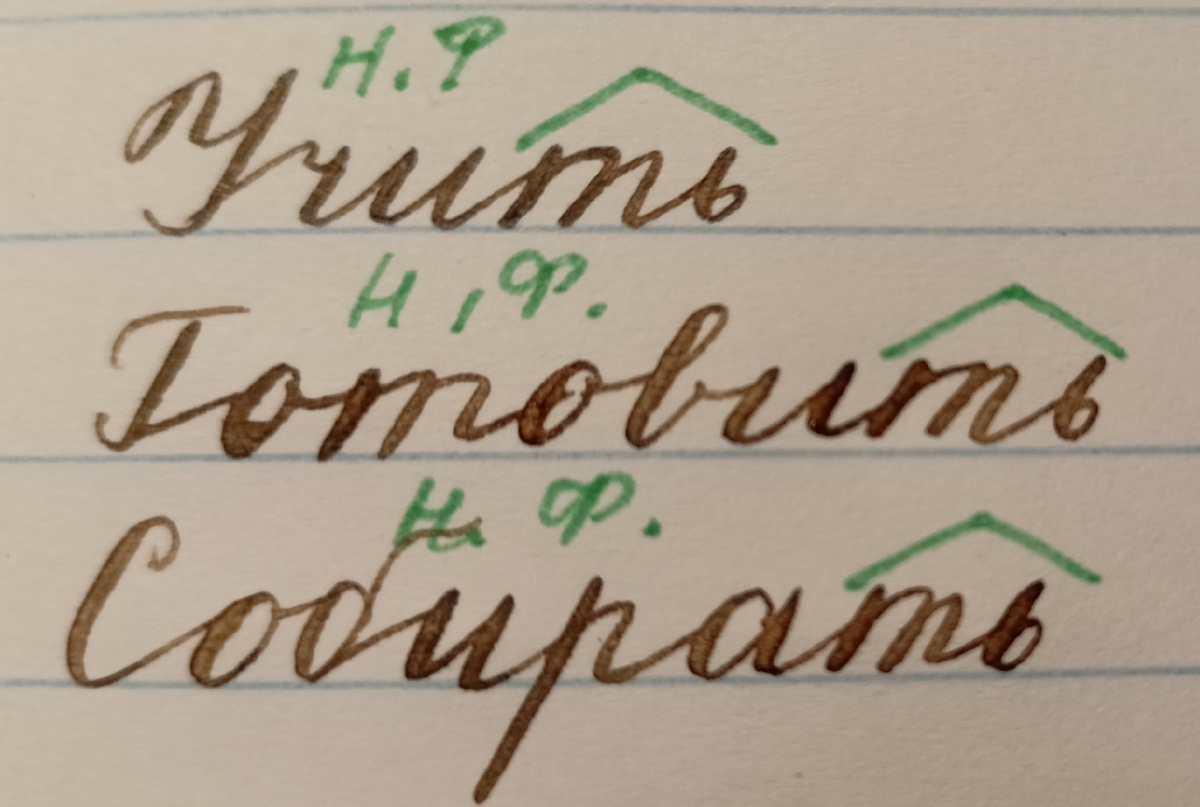 н.ф
Учить
н.ф.
Готовить
н.ф.
Собирать